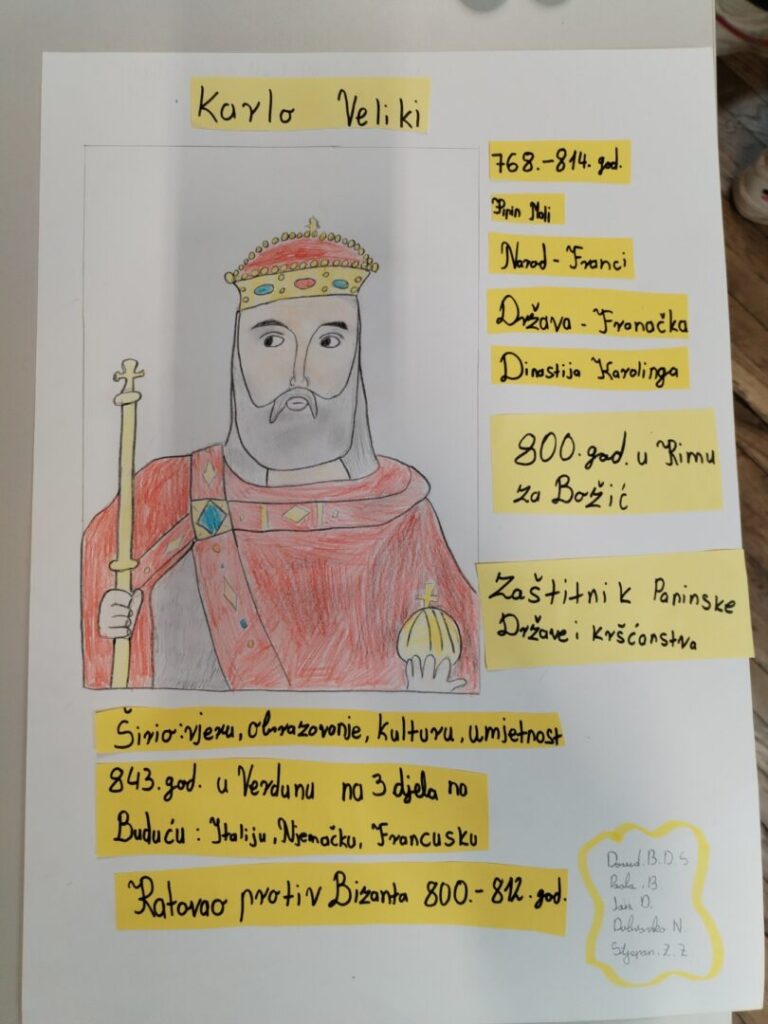 Karlo Veliki
768.-814. god.
Pipin Mali
Narod - Franci
Država - Franačka
Dinastija Karolinga
800. god. u Rimu
za Božić
Zaštitnik Papinske
Države i kršćanstva
Širio: vjeru, obrazovanje, kulturu, umjetnost
843. god. u Verdunu na 3 djela na
Buduću : Italiju, Njemačku, Francusku
Ratovao protiv Bizanta 800.-812. god.
B.D.S
B.
Jan D.
N.
Stjepan. Z. Z